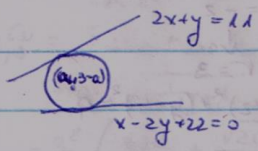 2x+y=11
(a,3-a)
x-2y+22=0